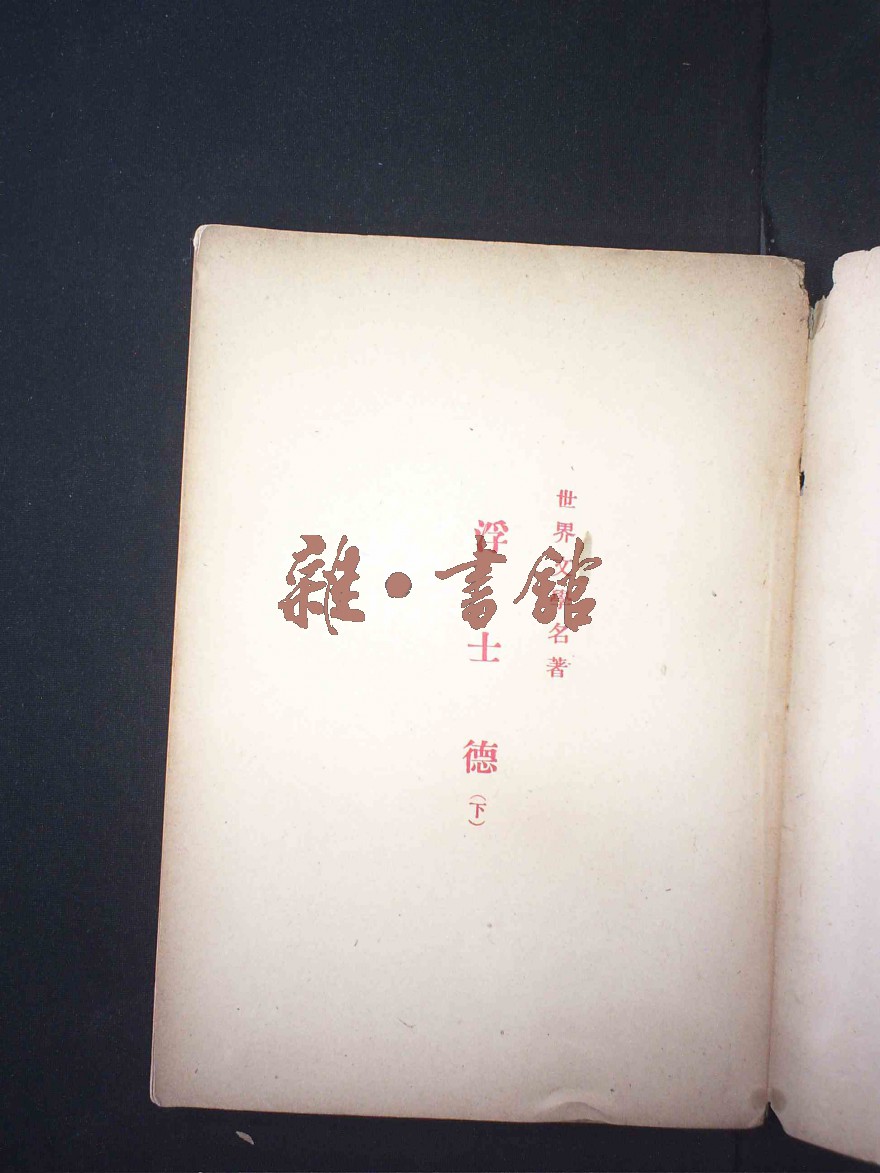 世界文學名著
浮士德(下)
雜·書館